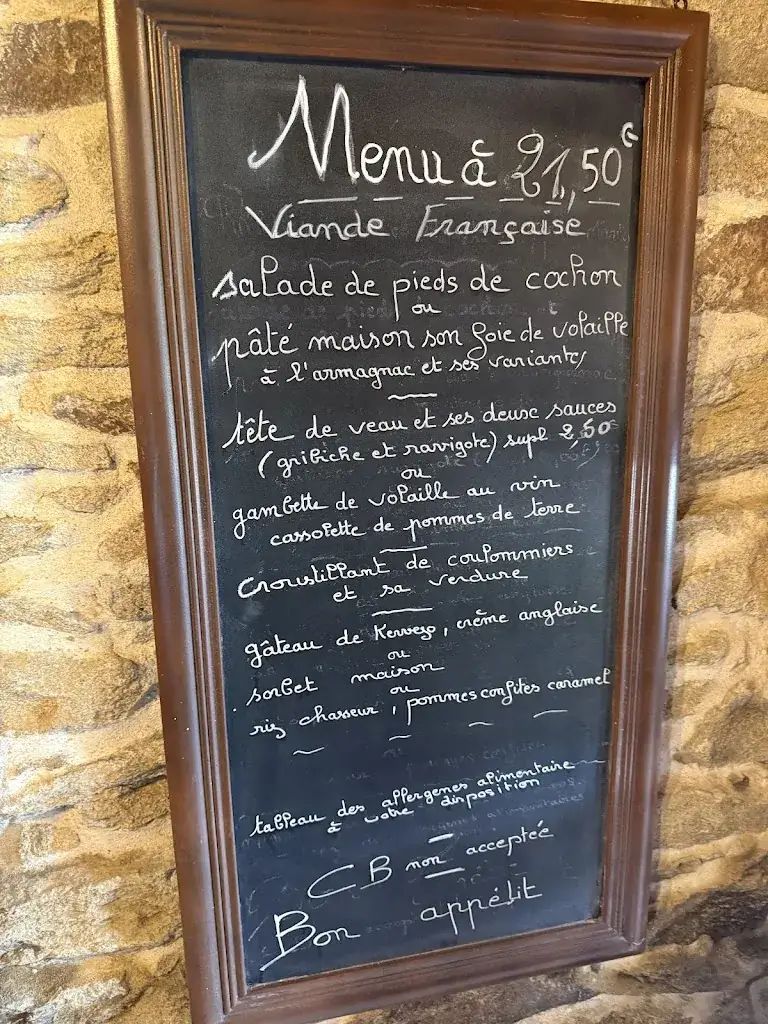 Menu à 21,50€
Viande Française
salade de pieds de cochon
ou
pâté maison son foie de volaille
à l'armagnac et ses variantes
tête de veau et ses deux sauces
(gribiche et ravigote) supl 2,50
ou
gambette de volaille au vin
cassolette de pommes de terre
Croustillant de coulommiers
et sa verdure
gâteau de Kerveso, crème anglaise
ou
sorbet maison
ou
riz chasseur, pommes confites caramel
tableau des allergenes alimentaire
à votre disposition
CB non acceptée
Bon appétit